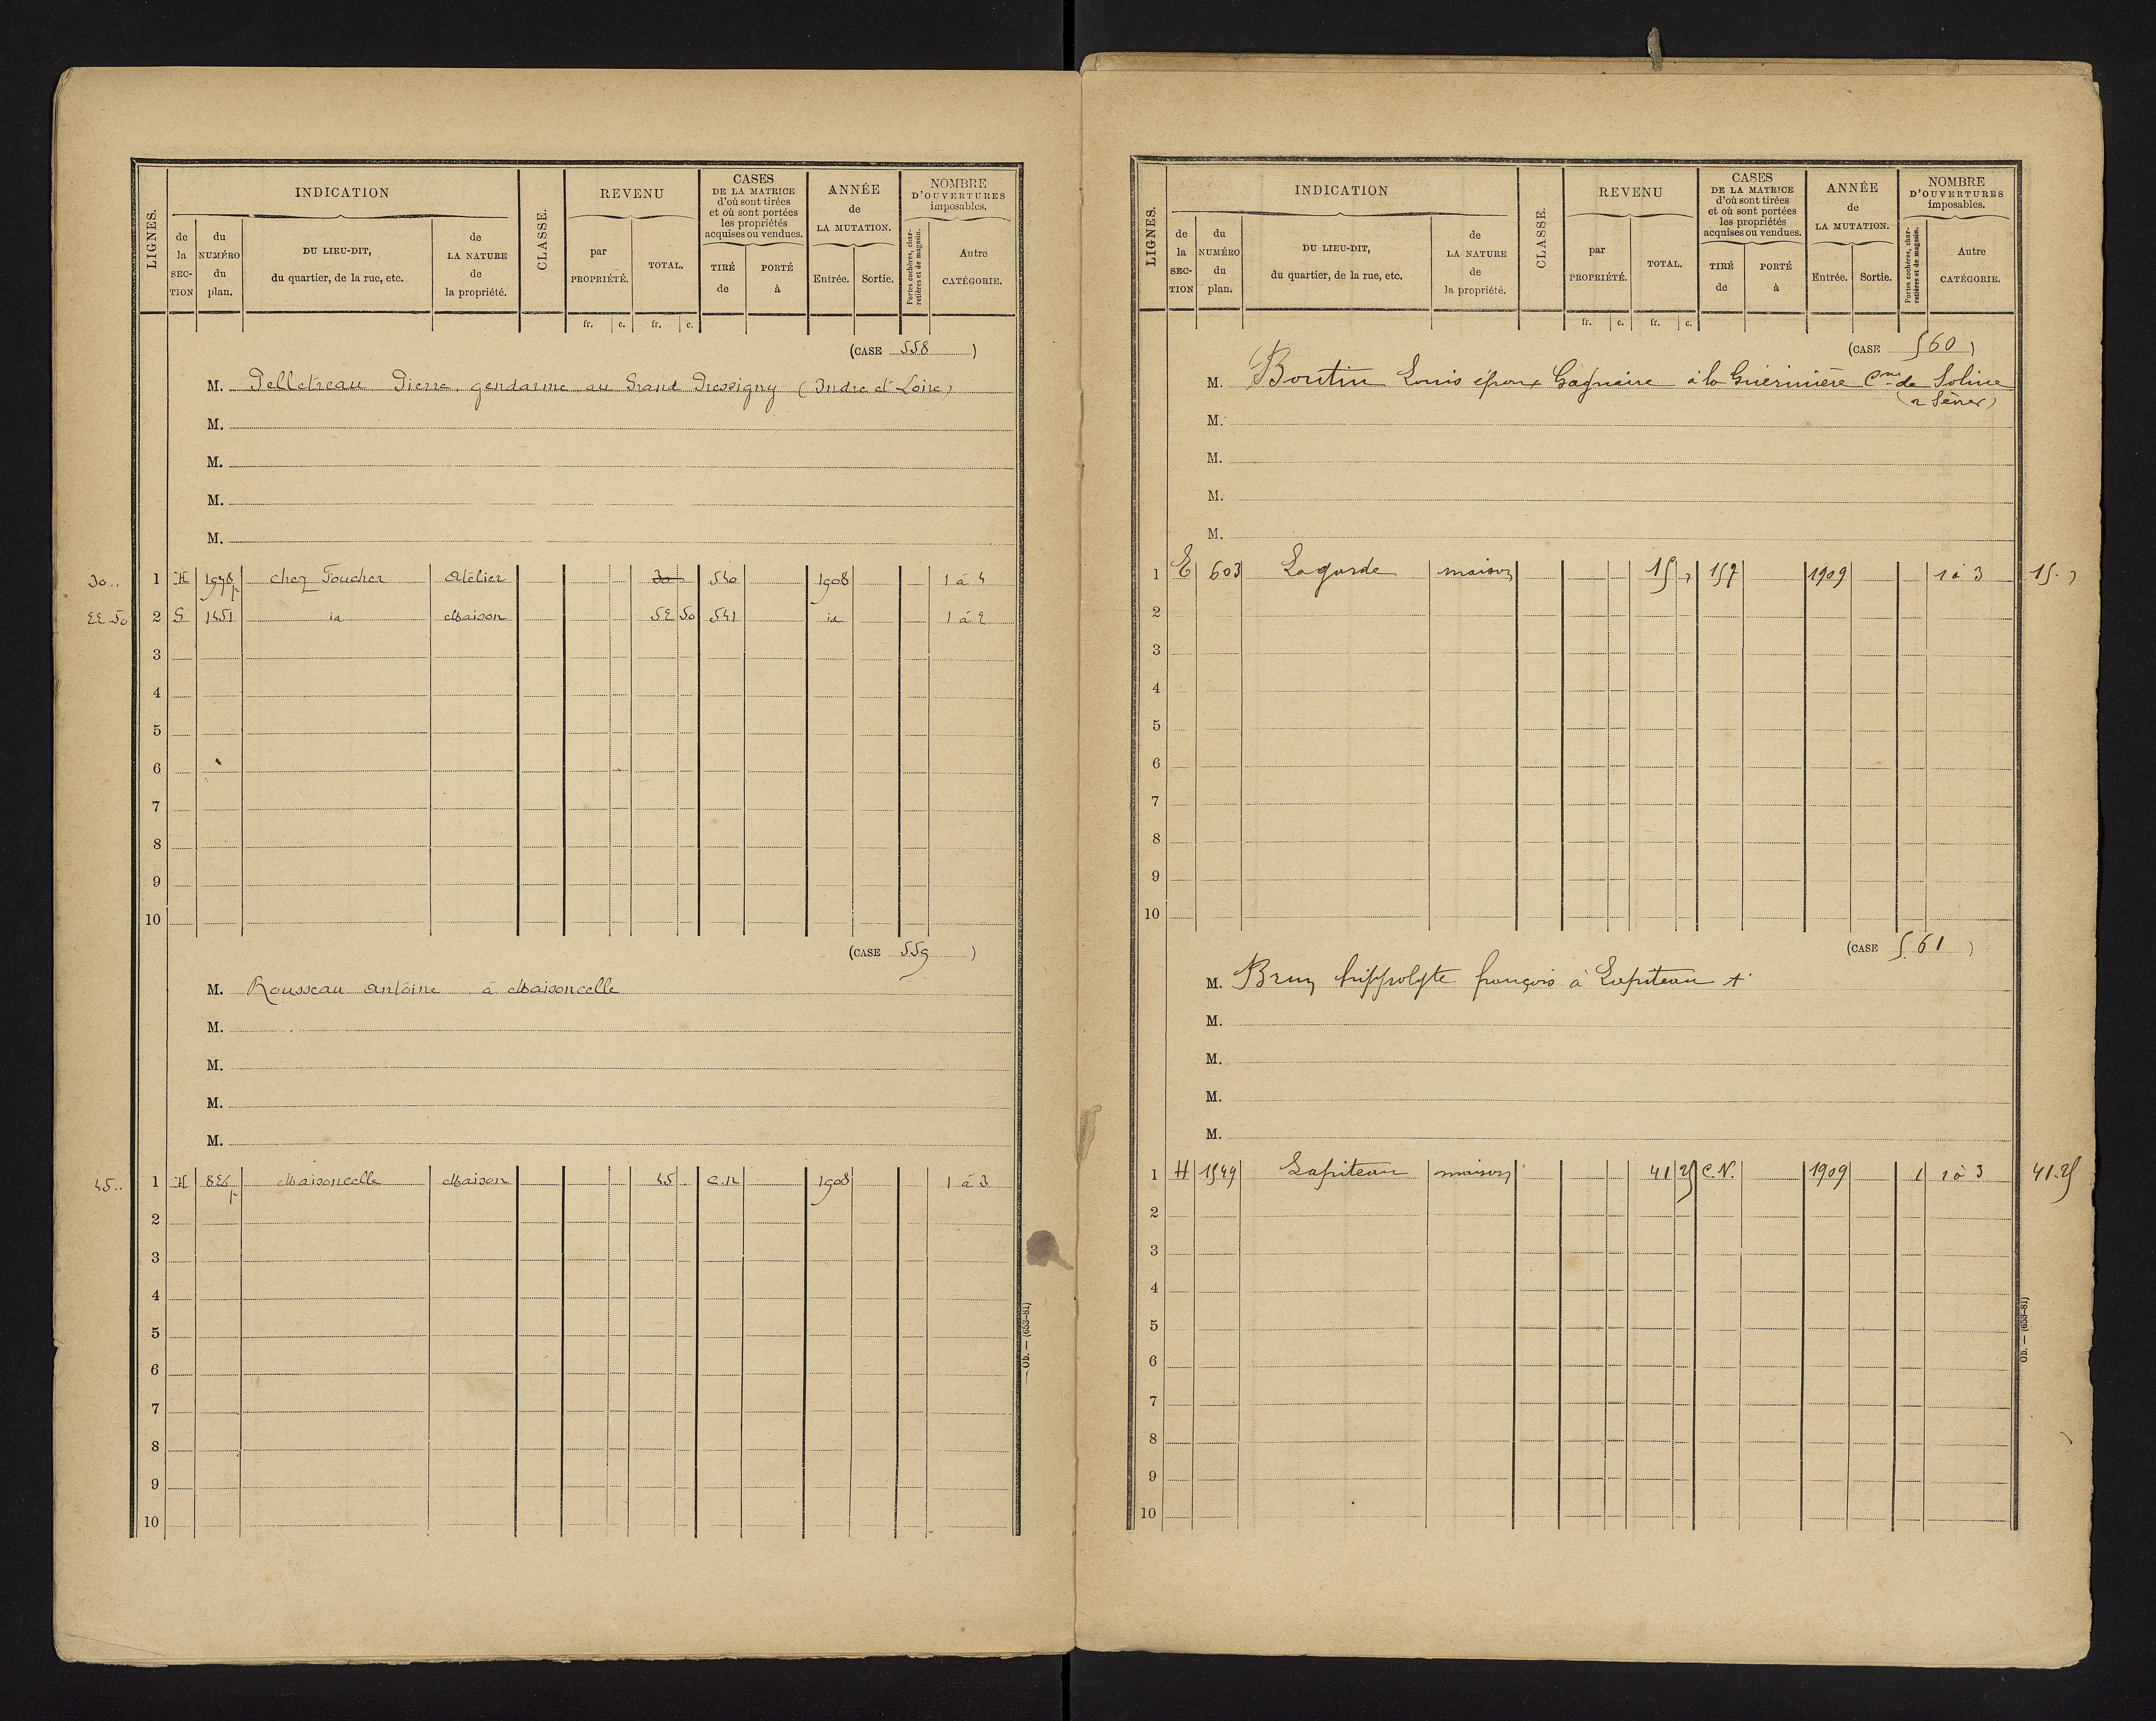 LIGNES.
INDICATION
CLASSE.
REVENU
CASES
DE LA MATRICE
d'où sont tirées
et où sont portées
les propriétés
acquises ou vendues.
ANNÉE
de
LA MUTATION.
NOMBRE
D'OUVERTURES
imposables.
de la SECTION
du NUMÉRO du plan.
DU LIEU-DIT,
du quartier, de la rue, etc.
de LA NATURE de la propriété.
par PROPRIÉTÉ.
TOTAL.
TIRÉ de
PORTÉ à
Entrée.
Sortie.
Portes cochères, charretières et de magasin.
Autre CATÉGORIE.
fr. c. fr. c.
(CASE 558)
M. Pelletreau Pierre, gendarme au Grand Pressigny (Indre et Loire)
M.
M.
M.
M.
30.. 1 H 1978p chez Foucher Atelier 30 540 1908 1 à 4
22 50 2 G 1451 id Maison 52 50 541 id 1 à 2
3
4
5
6
7
8
9
10
(CASE 559)
M. Rousseau Antoine à Maisoncelle
M.
M.
M.
M.
45.. 1 H 826p Maisoncelle Maison 45 .. C.N 1908 1 à 3
2
3
4
5
6
7
8
9
10
Ob. — (653-81)
LIGNES.
INDICATION
CLASSE.
REVENU
CASES
DE LA MATRICE
d'où sont tirées
et où sont portées
les propriétés
acquises ou vendues.
ANNÉE
de
LA MUTATION.
NOMBRE
D'OUVERTURES
imposables.
de la SECTION
du NUMÉRO du plan.
DU LIEU-DIT,
du quartier, de la rue, etc.
de LA NATURE de la propriété.
par PROPRIÉTÉ.
TOTAL.
TIRÉ de
PORTÉ à
Entrée.
Sortie.
Portes cochères, charretières et de magasin.
Autre CATÉGORIE.
fr. c. fr. c.
(CASE 560)
M. Boutin Louis époux à la Guérinière Cne de
(2 Sèvres)
M.
M.
M.
M.
1 E 603 Lagarde maison 15 " 157 1909 1 à 3 15. "
2
3
4
5
6
7
8
9
10
(CASE 561)
M. Brun hippolyte françois à Lapiteau +
M.
M.
M.
M.
1 H 1549 Lapiteau maison 41 25 C.N. 1909 1 1 à 3 41.25
2
3
4
5
6
7
8
9
10
Ob. — (653-81)